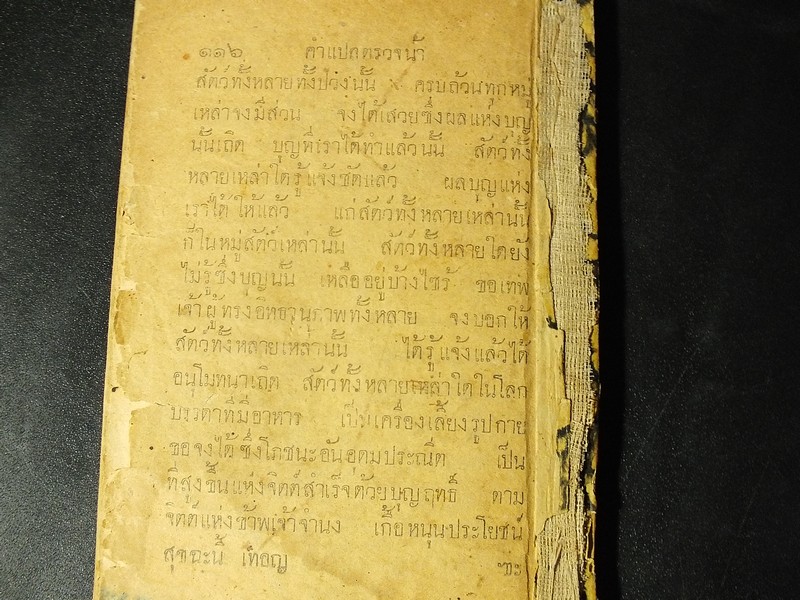 ๑๑๖ คำแปลตรวจน้ำ
สัตว์ทั้งหลายทั้งปวงนั้น ครบถ้วนทุกหมู่
เหล่าจงมีส่วน จงได้เสวยซึ่งผลแห่งบุญ
นั้นเถิด บุญที่เราได้ทำแล้วนั้น สัตว์ทั้ง
หลายเหล่าใดรู้แจ้งชัดแล้ว ผลบุญแห่ง
เราได้ให้แล้ว แก่สัตว์ทั้งหลายเหล่านั้น
ก็ในหมู่สัตว์เหล่านั้น สัตว์ทั้งหลายใดยัง
ไม่รู้ซึ่งบุญนั้น เหลืออยู่บ้างไซร้ ขอเทพ
เจ้าผู้ทรงอิทธานุภาพทั้งหลาย จงบอกให้
สัตว์ทั้งหลายเหล่านั้น ได้รู้แจ้งแล้วได้
อนุโมทนาเถิด สัตว์ทั้งหลายเหล่าใดในโลก
บรรดาที่มีอาหาร เป็นเครื่องเลี้ยงรูปกาย
ขอจงได้ซึ่งโภชนะอันอุดมประณีต เป็น
ที่สูงขึ้นแห่งจิตต์สำเร็จด้วยบุญฤทธิ์ ตาม
จิตต์แห่งข้าพเจ้าจำนง เกื้อหนุนประโยชน์
สุขฉะนี้ เทอญ ๚ะ